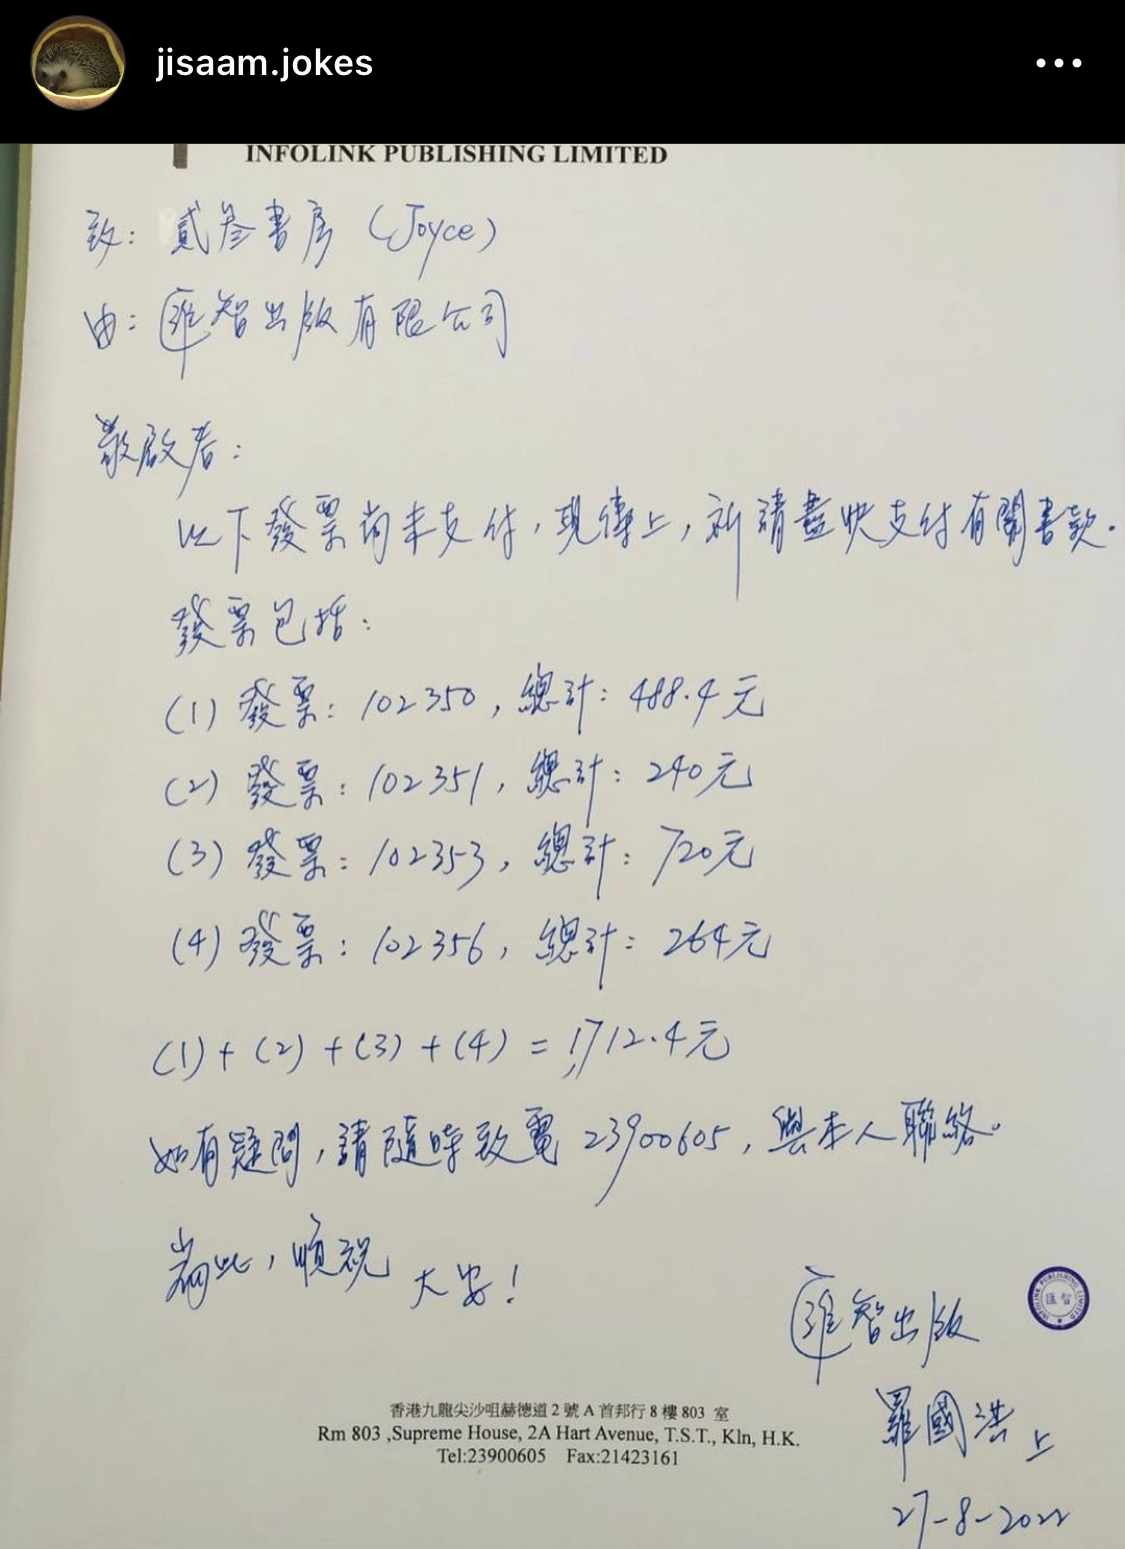 jisaam.jokes
INFOLINK PUBLISHING LIMITED
致：貳叁書房（Joyce）
由：匯智出版有限公司
敬啟者：
以下發票尚未支付，現傳上，祈請盡快支付有關書款。
發票包括：
(1) 發票：102350，總計：488.4元
(2) 發票：102351，總計：240元
(3) 發票：102353，總計：720元
(4) 發票：102356，總計：264元
(1)+(2)+(3)+(4) = 1,712.4元
如有疑問，請隨時致電23900605，與本人聯絡。
耑此，順祝
大安！
匯智出版
INFOLINK PUBLISHING LIMITED
匯智
羅國洪上
27-8-2022
香港九龍尖沙咀赫德道 2 號 A 首邦行 8 樓 803 室
Rm 803 ,Supreme House, 2A Hart Avenue, T.S.T., Kln, H.K.
Tel:23900605 Fax:21423161